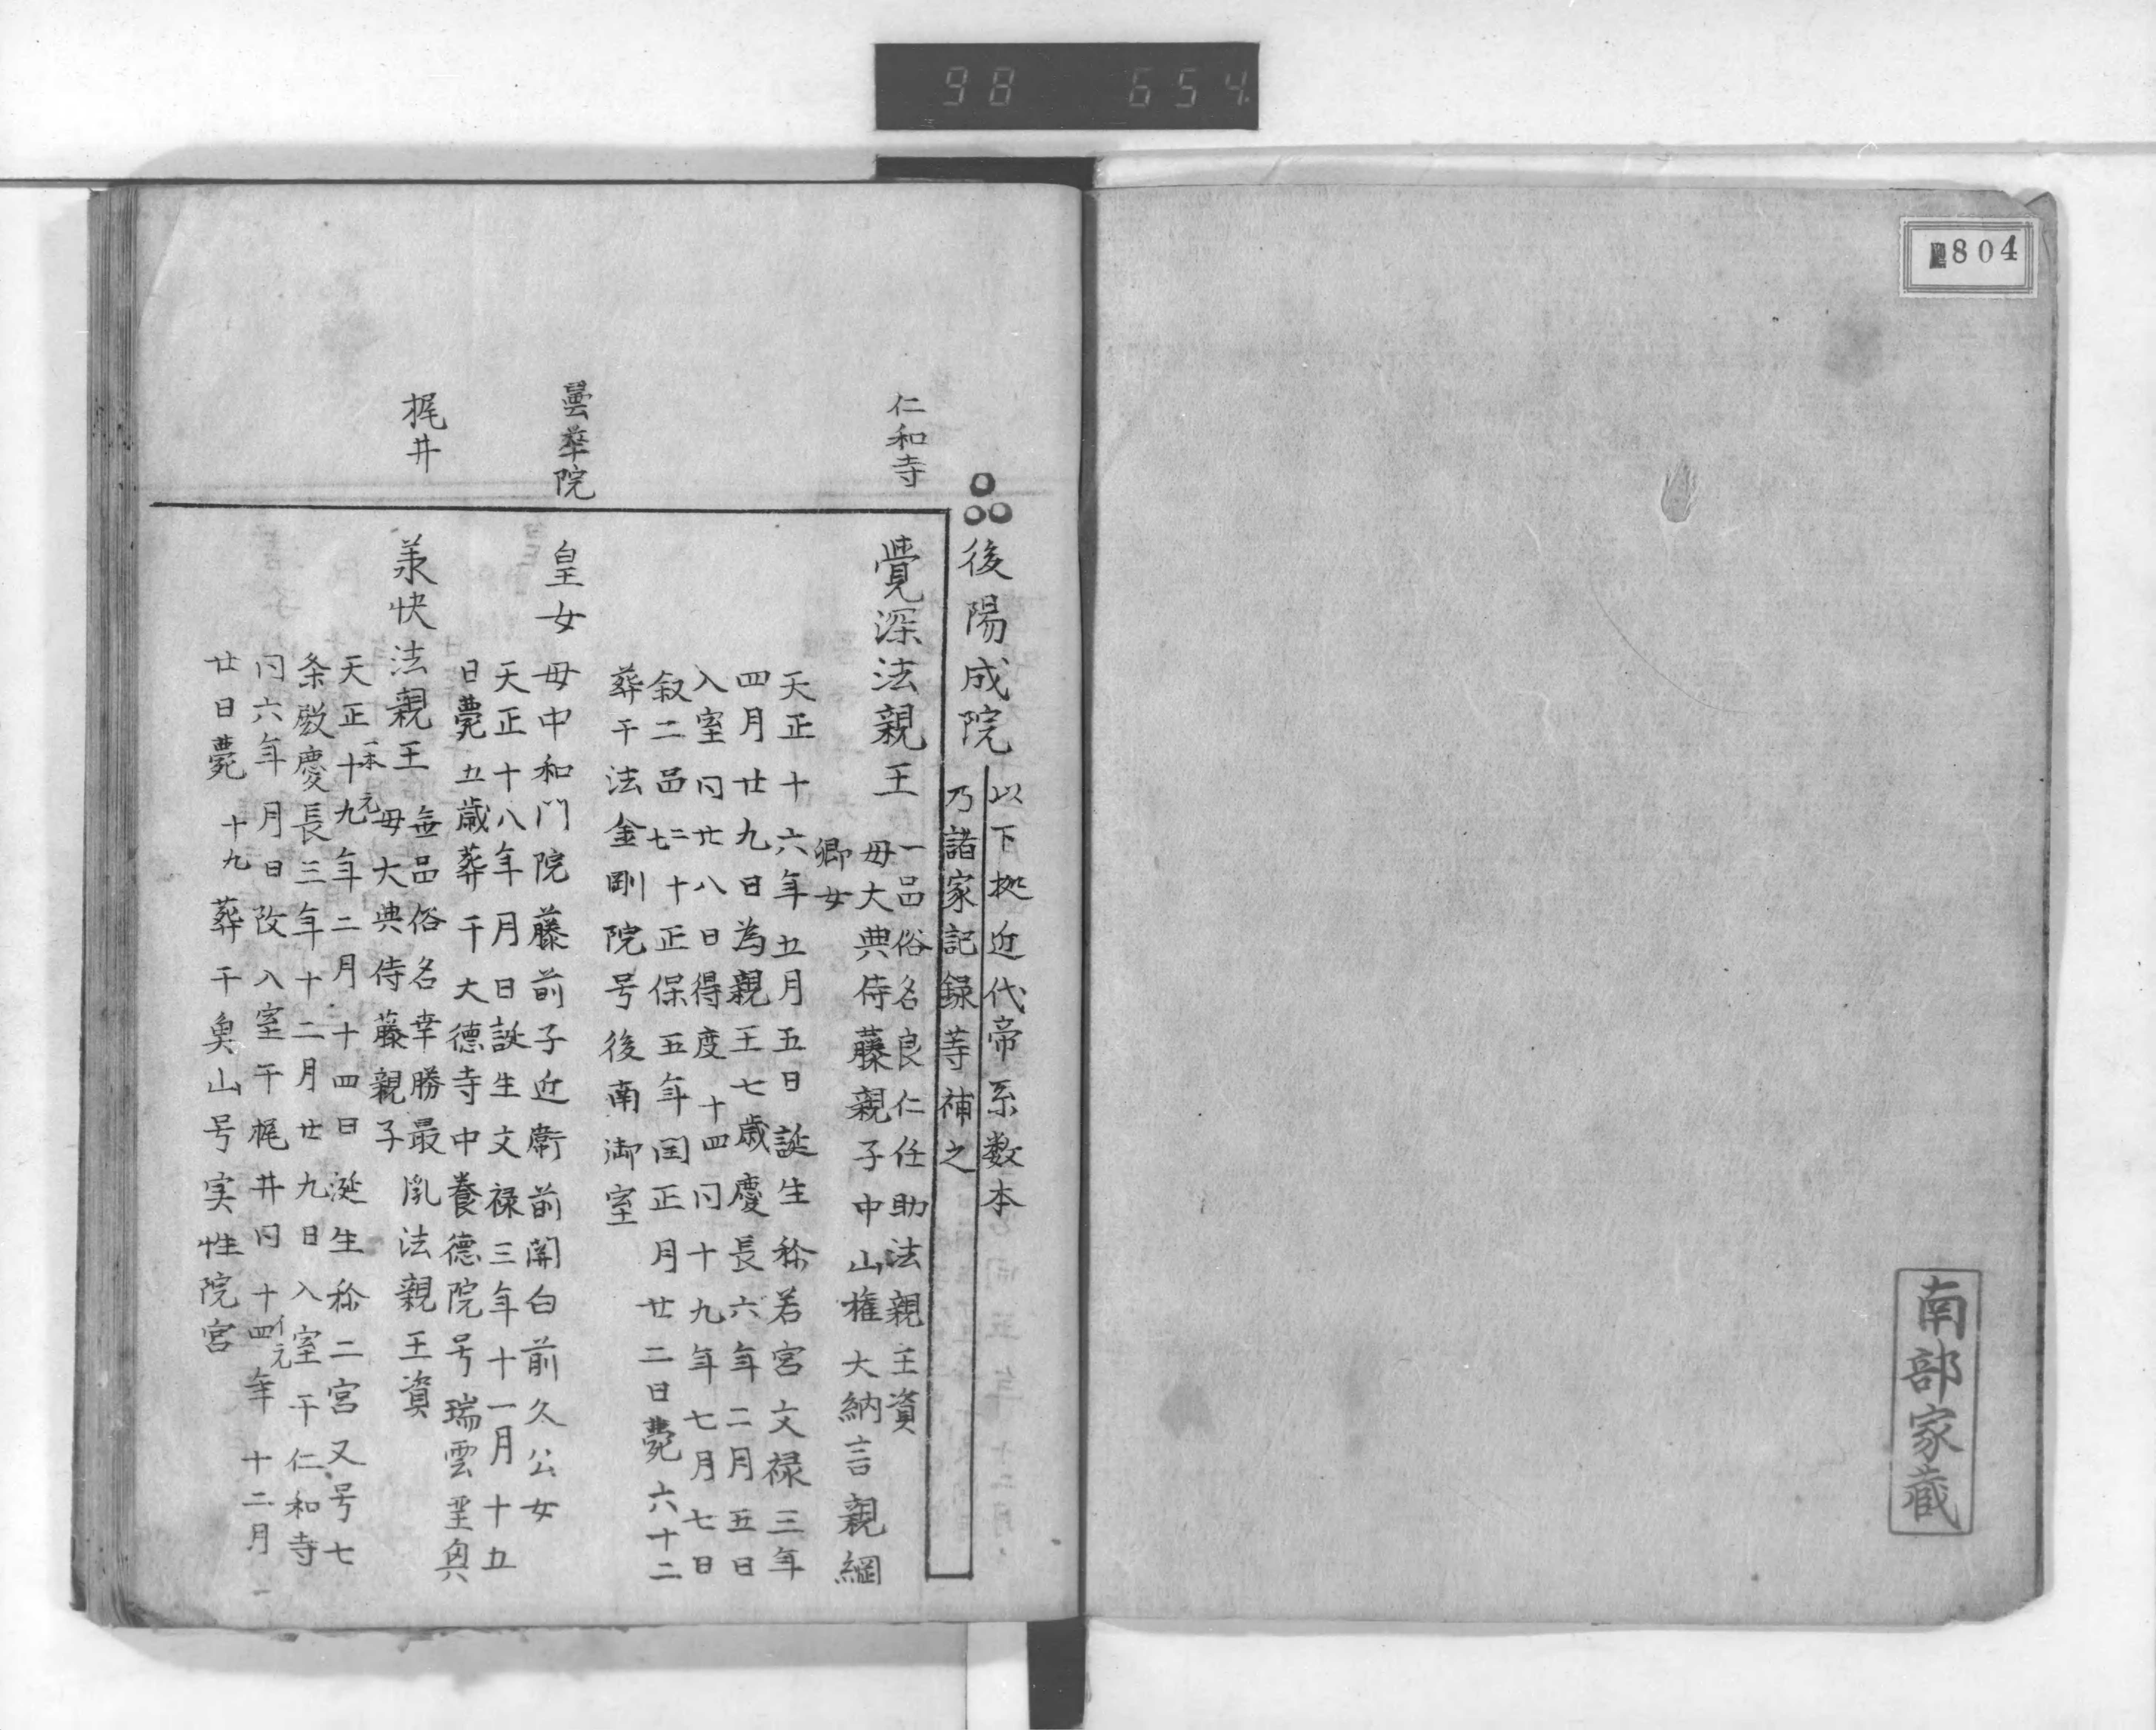 98 654
804
南部家蔵
後陽成院
以下拠近代帝系数本
乃諸家記録等補之
仁和寺
覺深法親王
一品俗名良仁任助法親王資
母大典侍藤親子中山権大納言親綱
卿女
天正十六年五月五日誕生称若宮文禄三年
四月廿九日為親王七歳慶長六年二月五日
入室同廿八日得度十四同十九年七月七日
叙二品二十七正保五年閏正月廿二日薨六十二
葬于法金剛院号後南御室
曇華院
皇女
母中和門院藤前子近衛前関白前久公女
天正十八年月日誕生文禄三年十一月十五
日薨五歳葬于大徳寺中養徳院号瑞雲聖奥
梶井
承快法親王
無品俗名幸勝最胤法親王資
母大典侍藤親子
天正十九年二月十四日誕生称二宮又号七
一本 元
条殿慶長三年十二月廿九日入室于仁和寺
同六年月日改入室于梶井同十四年十二月
イ元
廿日薨十九葬于魚山号実性院宮